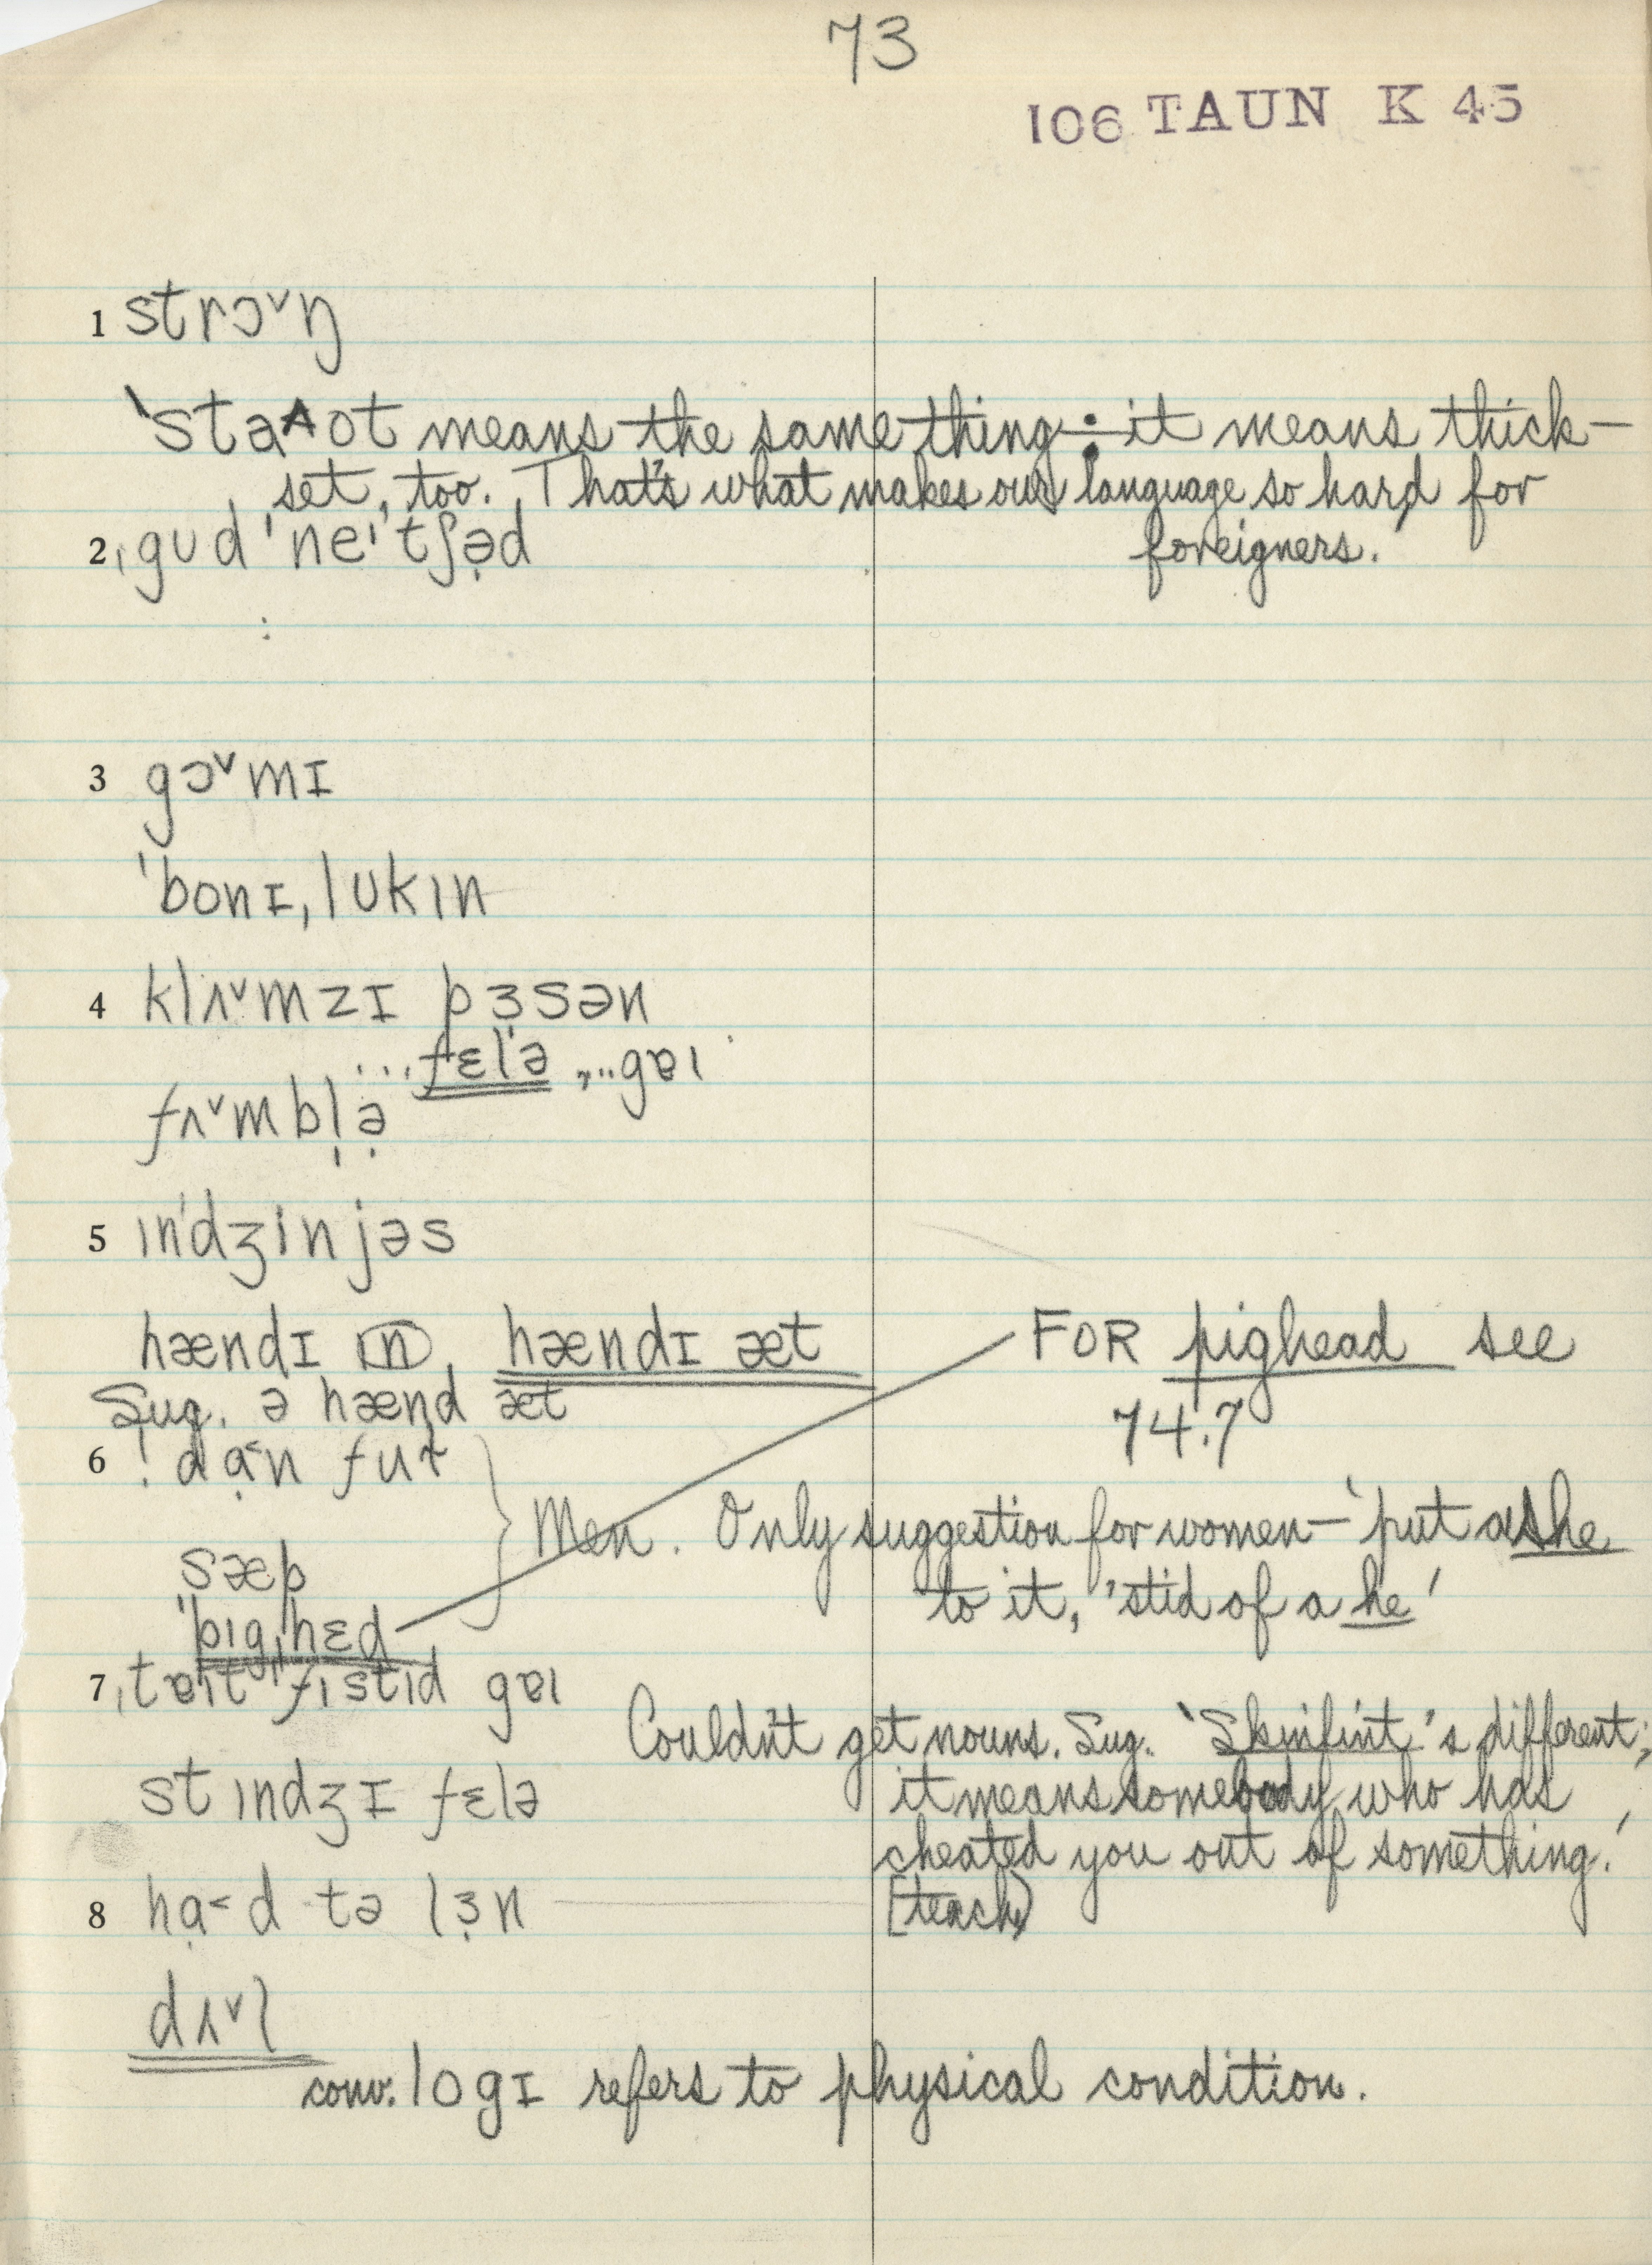 73
106 TAUN K 45
1 strɔ˅ŋ
'stəʌot means the same thing ÷ it means thick-
set, too. That's what makes our language so hard for
foreigners.'
2 ˌgud 'neˈtʃə̣d
:
3 gɔ˅mɪ
'bonɪ,lʊkɪn
4 klʌ˅mzɪ pɜsən
...fɛl'ə ,..gɐɪ
fʌ˅mbl̩ə̣
5 ɪn'dʒinjəs
hændɪ ɪn, hændɪ æt
Sug. ə hænd æt
FOR pighead see
74.7
6 ! dɑ̣˂n fuɫ
Men. Only suggestion for women — 'put a she
to it, 'stid of a he'
sæp
'pɪg,hɛd
7 ˌtɐɪt 'fɪstɪd gɐɪ
Couldn't get nouns. Sug. 'Skinflint's different;
it means somebody who has
cheated you out of something.'
stɪndʒɪ fɛlə
8 hɑ̣˂d tə lɜ̣n
[teach)
dʌ˅l
conv. logɪ refers to physical condition.